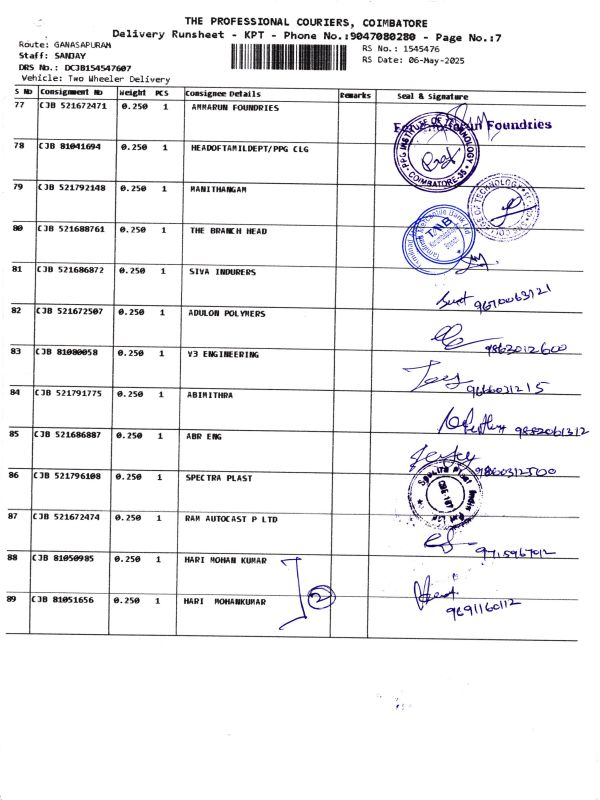 THE PROFESSIONAL COURIERS, COIMBATORE
Delivery Runsheet - KPT - Phone No.:9047080280 - Page No.:7
Route: GANASAPURAM
RS No.: 1545476
Staff: SANJAY
RS Date: 06-May-2025
DRS No.: DCJB154547607
Vehicle: Two Wheeler Delivery
S NO Consignment No Weight PCS Consignee Details Remarks Seal & Signature
77 CJB 521672471 0.250 1 AMMARUN FOUNDRIES
Foundries
78 CJB 81041694 0.250 1 HEADOFTAMILDEPT/PPG CLG
PPG INSTITUTE OF TECHNOLOGY
COIMBATORE-35
79 CJB 521792148 0.250 1 MANITHANGAM
OF TECHNOLOGY
80 CJB 521688761 0.250 1 THE BRANCH HEAD
Tamilnad Mercantile Bank Ltd
TMB
81 CJB 521686872 0.250 1 SIVA INDURERS
82 CJB 521672507 0.250 1 ADULON POLYMERS
9863012600
83 CJB 81080058 0.250 1 V3 ENGINEERING
9666031215
84 CJB 521791775 0.250 1 ABIMITHRA
9882061312
85 CJB 521686887 0.250 1 ABR ENG
86 CJB 521796108 0.250 1 SPECTRA PLAST
Spectra Plast India Pvt Ltd
87 CJB 521672474 0.250 1 RAM AUTOCAST P LTD
88 CJB 81050985 0.250 1 HARI MOHAN KUMAR
2
89 CJB 81051656 0.250 1 HARI MOHANKUMAR
9691160112